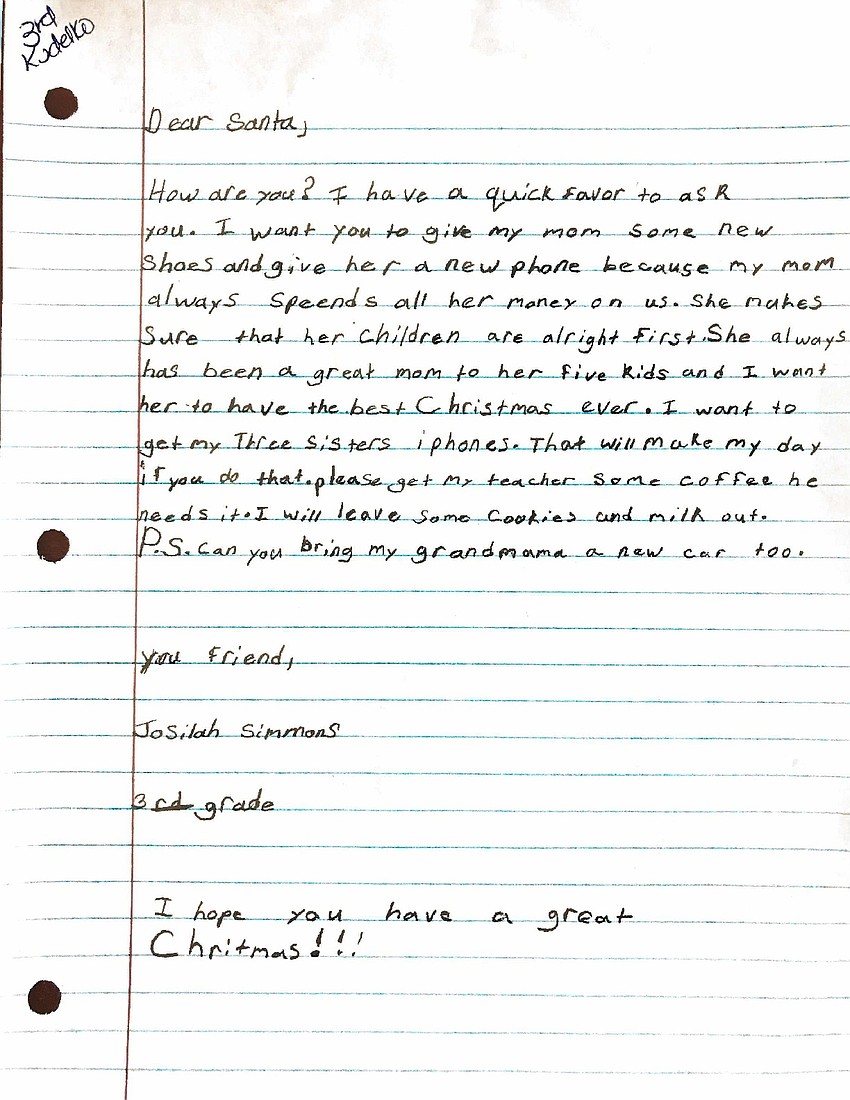 3rd
Kudelko
Dear Santa,
How are you? I have a quick favor to ask
you. I want you to give my mom some new
Shoes and give her a new phone because my mom
always Speends all her money on us. She makes
Sure that her children are alright first. She always
has been a great mom to her five kids and I want
her to have the best Christmas ever. I want to
get my Three sisters iphones. That will make my day
if you do that. please get my teacher some coffee he
needs it. I will leave some cookies and milk out.
P.S. Can you bring my grandmama a new car too.
you friend,
Josilah Simmons
3rd grade
I hope you have a great
Chritmas!!!